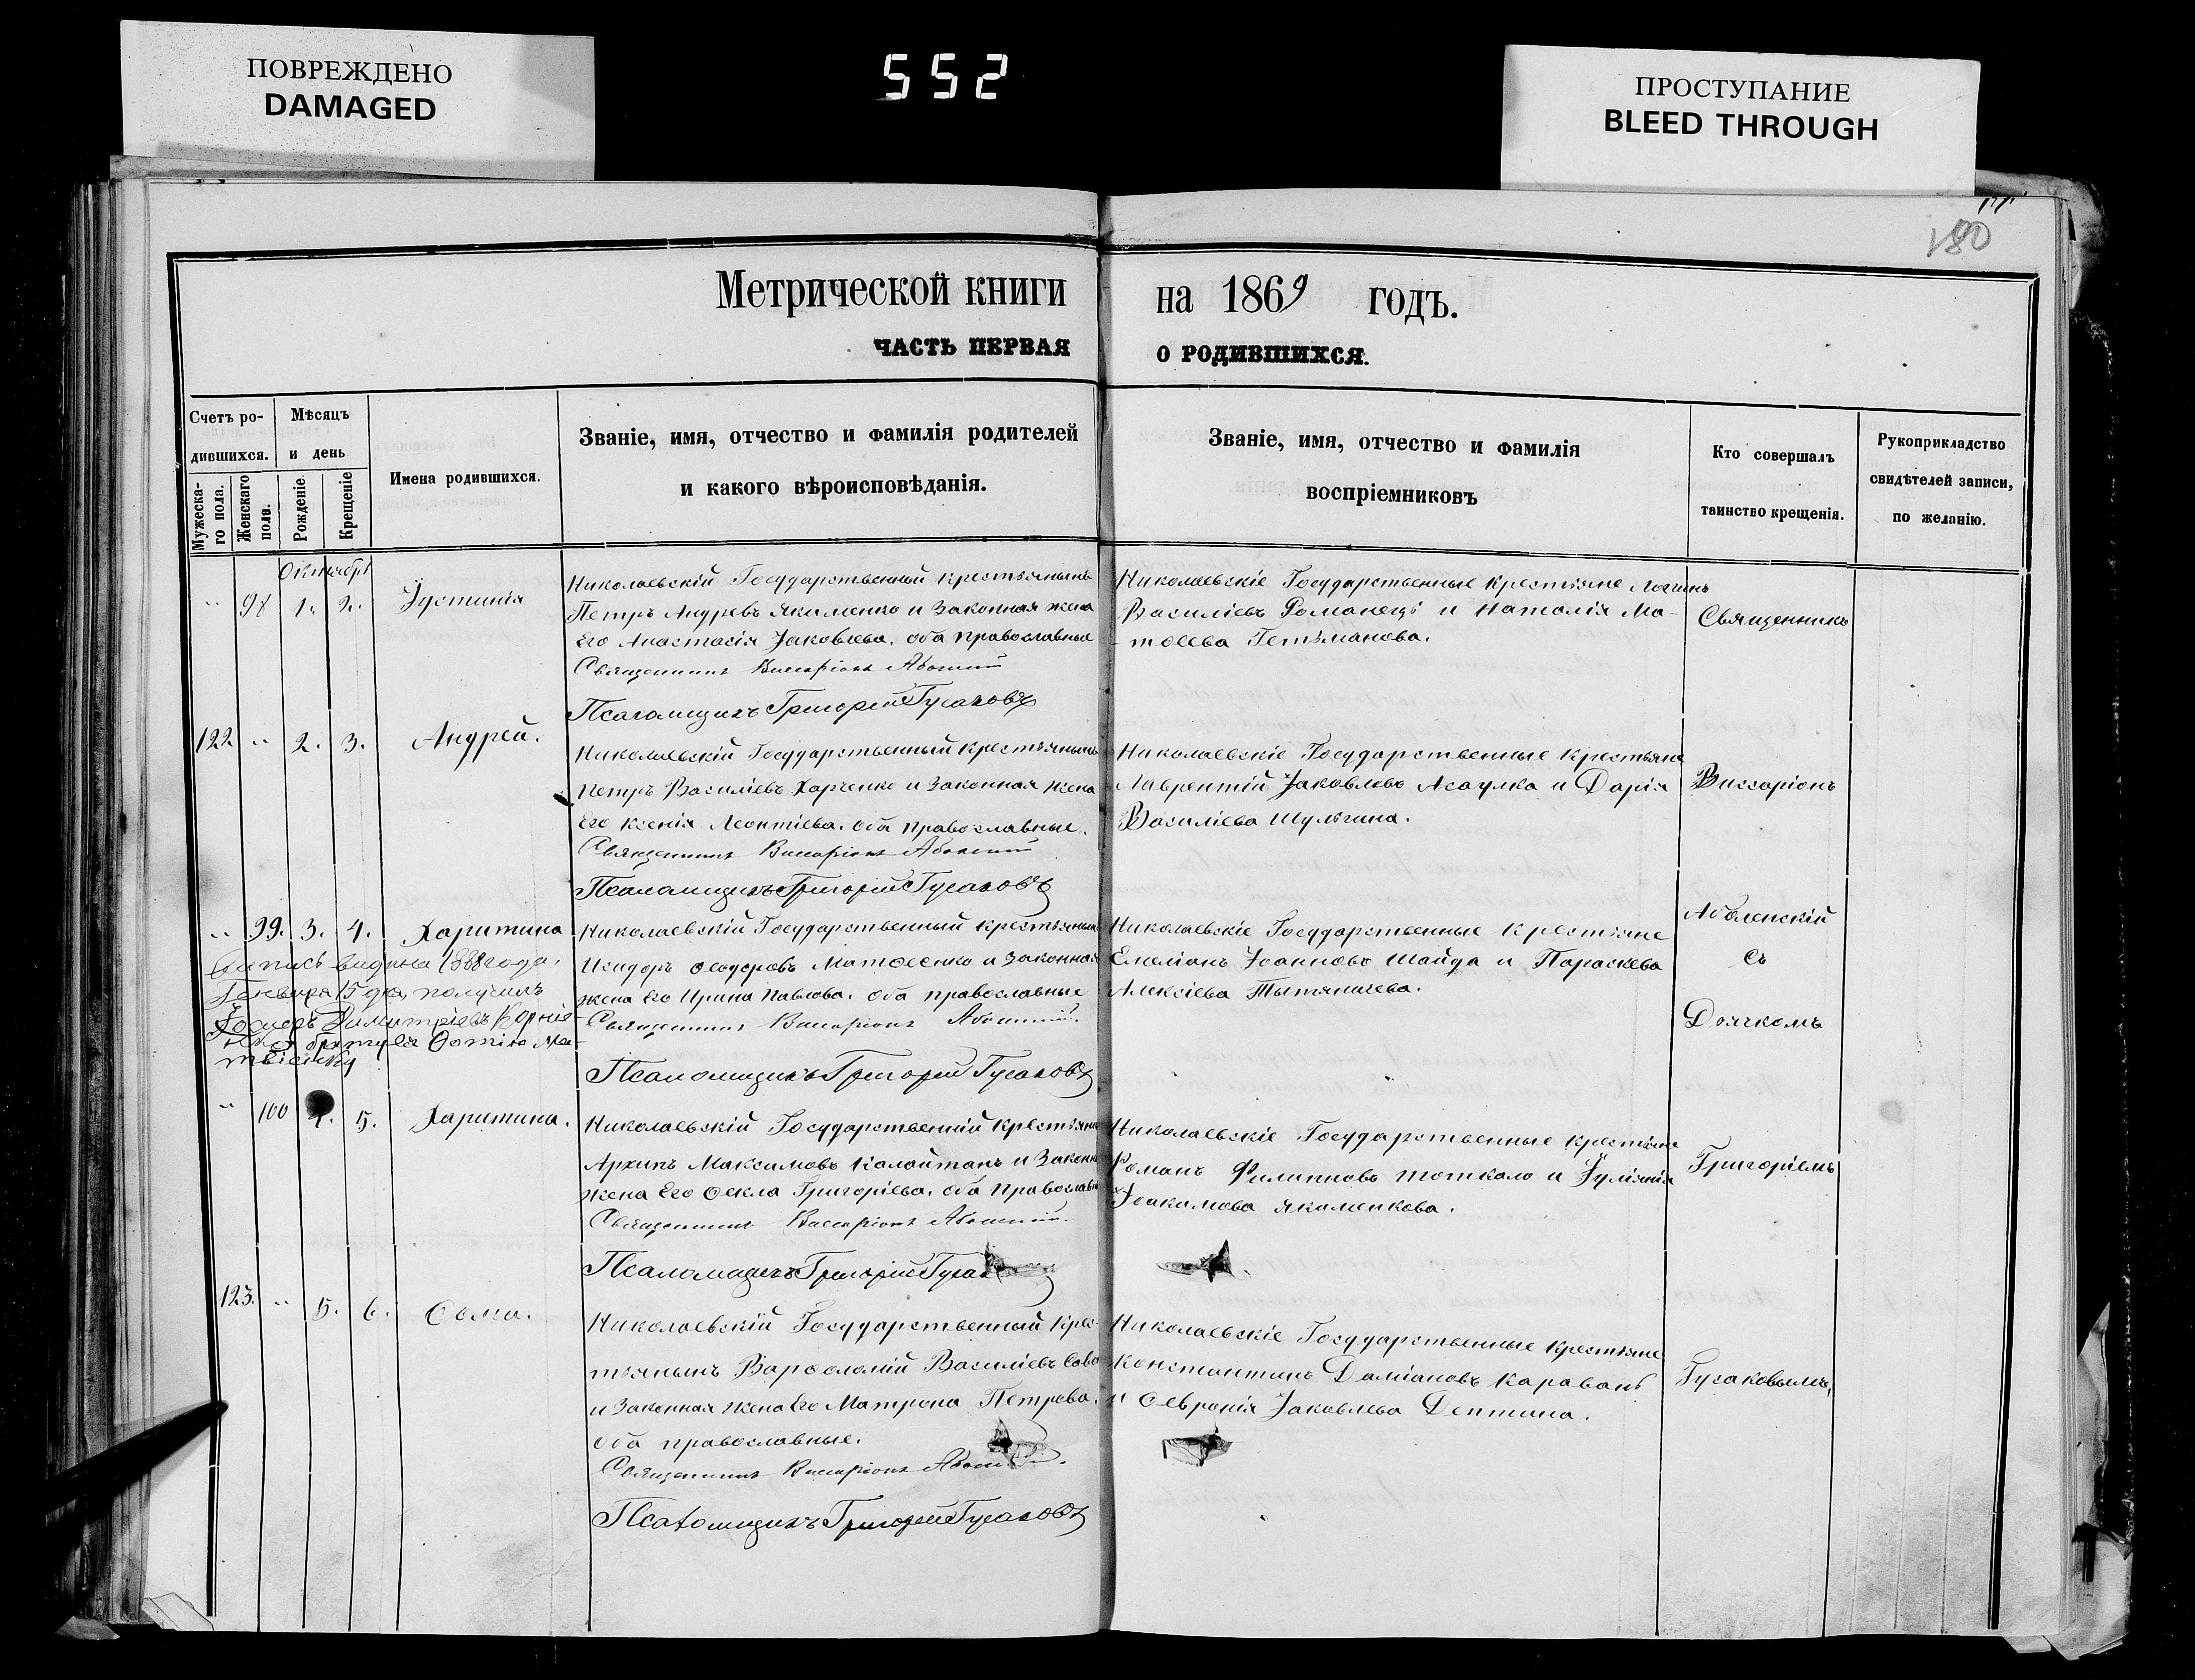 ПОВРЕЖДЕНО
DAMAGED
552
ПРОСТУПАНИЕ
BLEED THROUGH
180
Метрической книги на 1869 годъ.
ЧАСТЬ ПЕРВАЯ О РОДИВШИХСЯ.
Счетъ ро-
дившихся.
Мужеска-
го пола.
Женскаго
пола.
Мѣсяцъ
и день
Рожденіе.
Крещеніе
Имена родившихся.
Званіе, имя, отчество и фамилія родителей
и какого вѣроисповѣданія.
Званіе, имя, отчество и фамилія
воспріемниковъ
Кто совершалъ
таинство крещенія.
Рукоприкладство
свидѣтелей записи,
по желанію.
Октябрь
" 98 1. 2. Іустинія
Николаевскій Государственный крестьянинъ
Петръ Андреевъ Якименко и Законная жена
Его Анастасія Іаковлева. оба православные
Священникъ Виссаріонъ
Псаломщикъ Григорій Гусаковъ
Николаевскіе Государственные крестьяне Логинъ
Василіевъ Романецъ и Наталія Ма-
тѳеева Гетьманова.
Священникъ
122 " 2. 3. Андрей.
Николаевскій Государственный крестьянинъ
Петръ Василіевъ Харченко и Законная жена
Его Ксенія Леонтіева. оба православные.
Священникъ Виссаріонъ
Псаломщикъ Григорій Гусаковъ
Николаевскіе Государственные крестьяне
Лаврентій Іаковлевъ Асаулка и Дарія
Василіева Шульгина.
Виссаріонъ
" 99. 3. 4. Харитина
Запись выдана 1888 года.
Генваря 15 дня, получилъ
Димитріевъ
Николаевскій Государственный крестьянинъ
Исидоръ Ѳеодоровъ Матѳеенко и Законная
жена Его Ирина Павлова. оба православные
Священникъ Виссаріонъ
Псаломщикъ Григорій Гусаковъ
Николаевскіе Государственные крестьяне
Емеліанъ Іоанновъ Шайда и Параскева
Алексіева Тытяничева.
Аболенскій
съ
Дьячкомъ
" 100 4. 5. Харитина.
Николаевскій Государственній крестьянинъ
Архипъ Максимовъ Калайтанъ и Законная
жена Его Ѳекла Григоріева. оба православн
Священникъ Виссаріонъ
Псаломщикъ Григорій
Николаевскіе Государственные крестьяне
Романъ Филипповъ Тоткало и Іуліанія
Іоакимова Якименкова.
Григоріемъ
123. " 5. 6. Ѳома.
Николаевскій Государственный крес-
тьянинъ Варѳоломій Василіевъ Сава
и Законная жена Его Матрона Петрова.
оба православные.
Священникъ Виссаріонъ
Псаломщикъ Григорій Гусаковъ
Николаевскіе Государственные крестьяне
Константинъ Даміановъ Караванъ
и Ѳевронія Іаковлева Дептина.
Гусаковымъ.